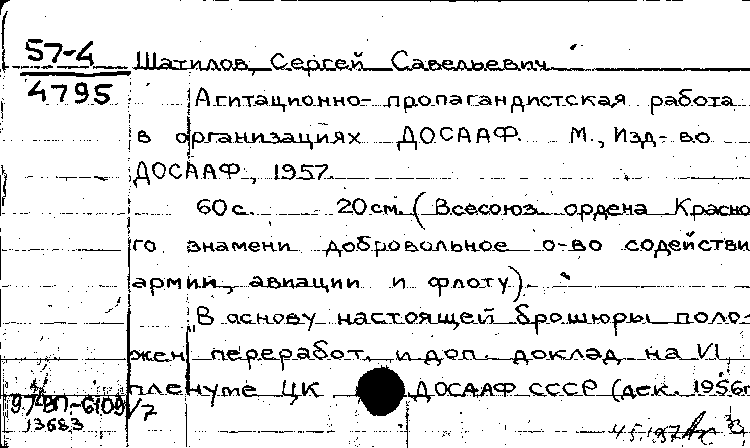 57-4
4795
Шатилов, Сергей Савельевич.
Агитационно-пропагандистская работа
в организациях ДОСААФ. М., Изд-во
ДОСААФ, 1957.
60с. 20см. (Всесоюз. ордена Красно
го знамени добровольное о-во содействи
армии, авиации и флоту).
В основу настоящей брошюры поло-
жен переработ. и доп. доклад на VI
пленуме ЦК ДОСААФ СССР (дек. 1956г
13683